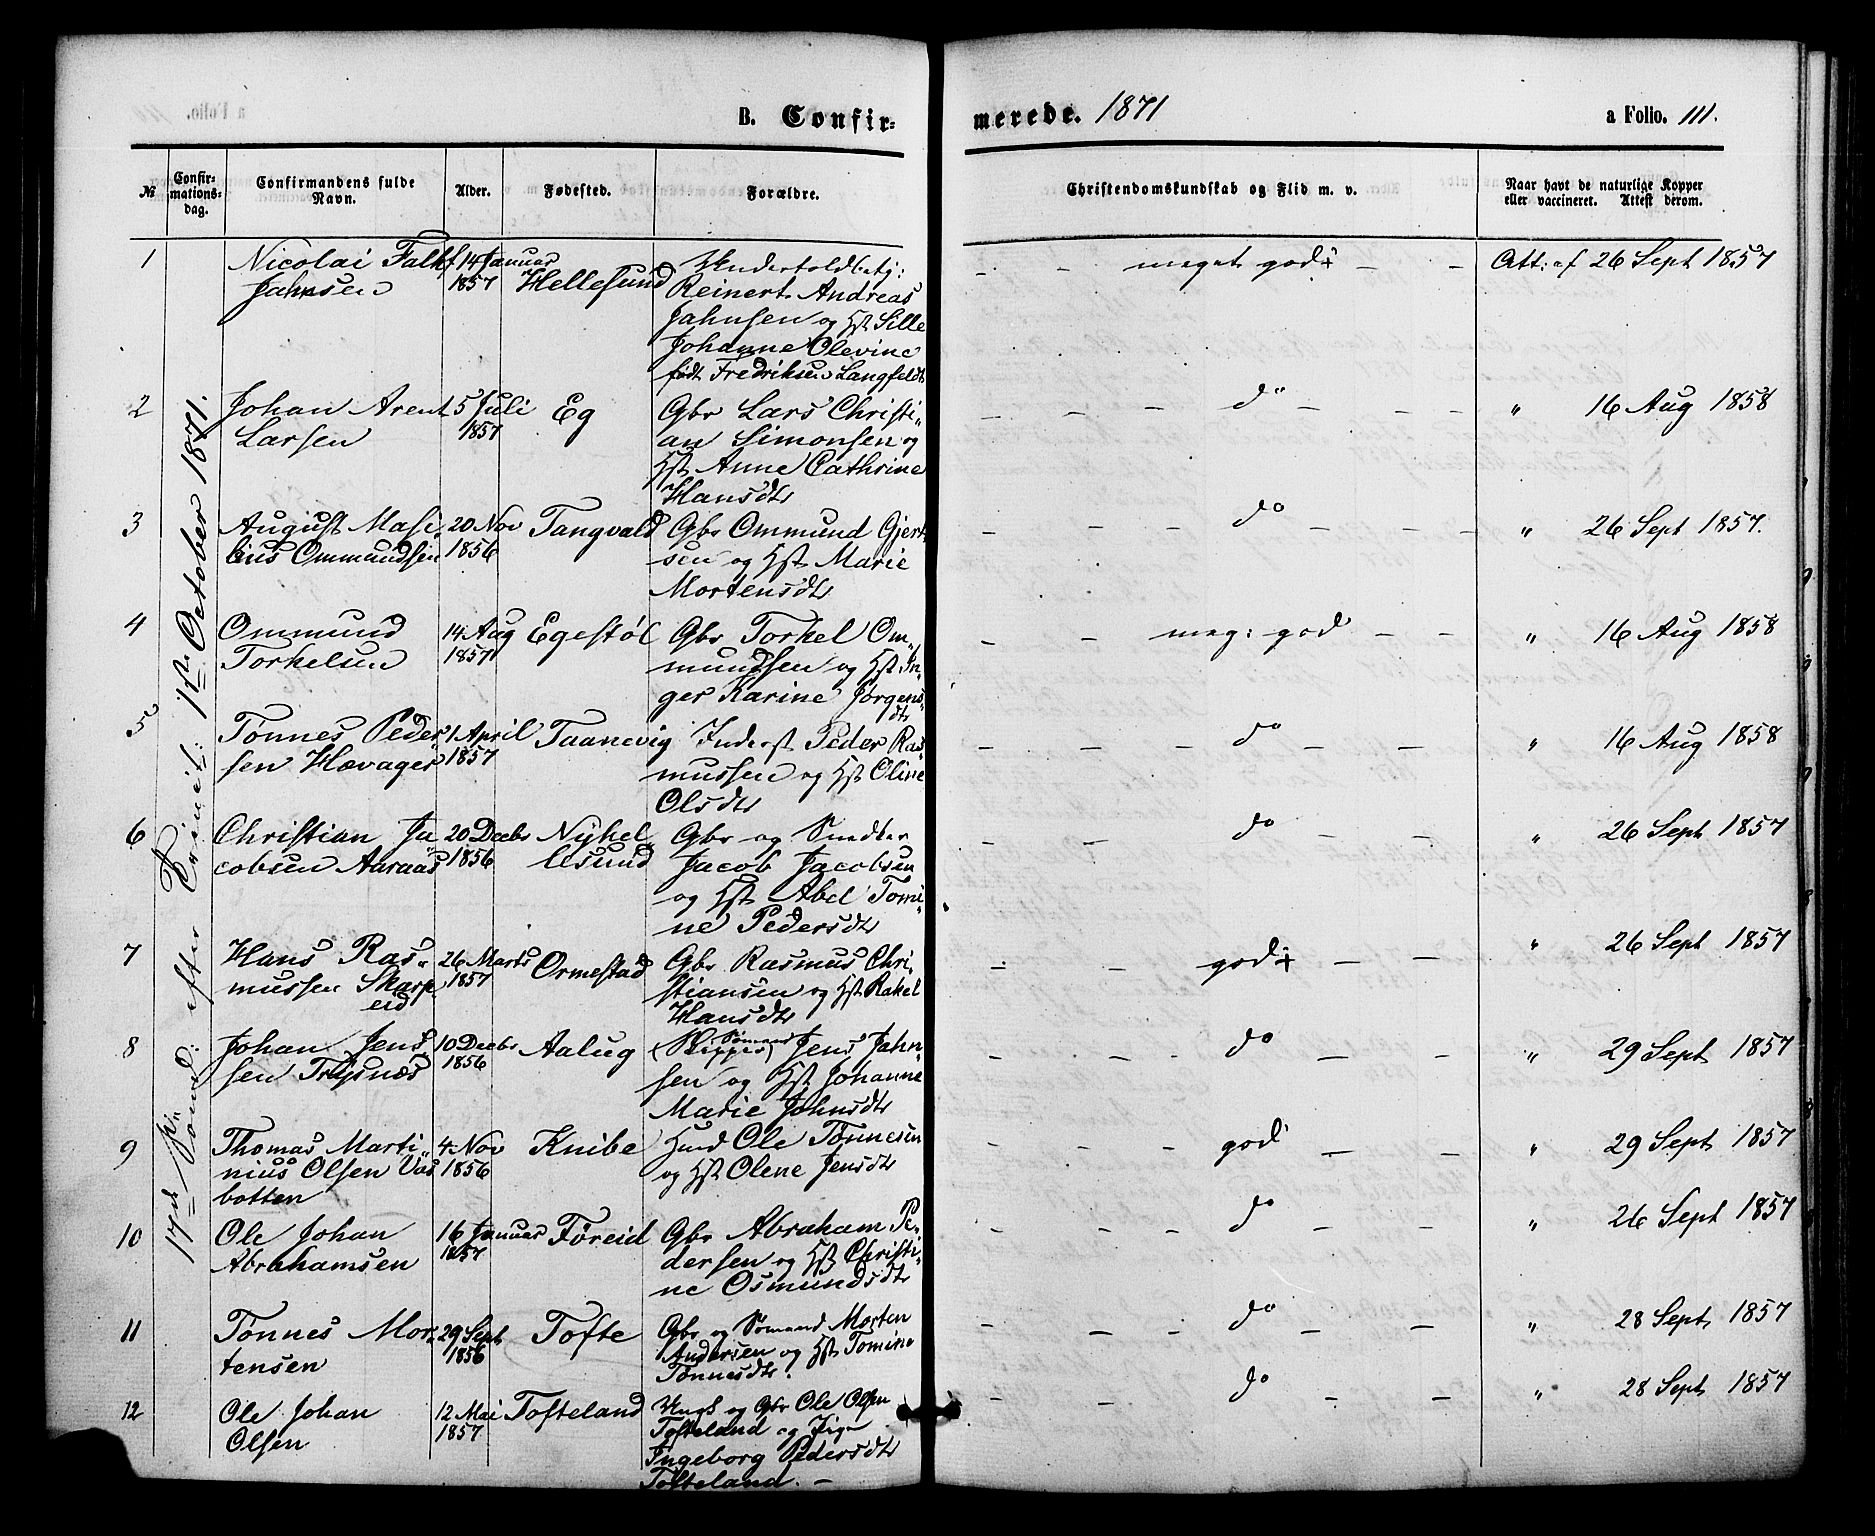 B. Confir-
merede. 1871
a Folio. 111.
№
Confir-
mations-
dag.
Confirmandens fulde
Navn.
Alder.
Fødested.
Forældre.
Christendomskundskab og Flid m. v.
Naar havt de naturlige Kopper
eller vaccineret. Attest derom.
17de Sønd: efter Trinit: 1ste October 1871.
1
Nicolai Falk
Jahnsen
f 14 Januar
1857
Hellesund
Undertoldbetj:
Reinert Andreas
Jahnsen og Hst Sille
Johanne Olevine
født Fredriksen Langfeldt
— — meget god + — —
Att: af 26 Sept 1857
2
Johan Arent
Larsen
5 Juli
1857
Eg
Gbr Lars Christi„
an Simonsen og
Hst Anne Cathrine
Hansdtr
do
„ 16 Aug 1858
3
August Masi„
lius Ommundsen
20 Nov
1856
Tangvald
Gbr Ommund Gjert
sen og Hst Marie
Mortensdtr
do
„ 26 Sept 1857.
4
Ommund
Torkelsen
14 Aug
1857
Egestøl
Gbr Torkel Om„
mundsen og Hst In„
ger Karine Jørgens„
dtr
— — meg: god — —
„ 16 Aug 1858
5
Tønnes Peder„
sen Hævager
1 April
1857
Taanevig
Inderst Peder Ras„
mussen og Hst Oline
Olsdtr
do
„ 16 Aug 1858
6
Christian Ja„
cobsen Aaraas
20 Decbr
1856
Nyhel„
lesund
Gbr og Snedker
Jacob Jacobsen
og Hst Abel Tomi„
ne Pedersdtr
do
„ 26 Sept 1857
7
Hans Ras„
mussen Skarp
eid
26 Marts
1857
Ormestad
Gbr Rasmus Chri„
stiansen og Hst Rakel
Hansdtr
god +
„ 26 Sept 1857
8
Johan Jens„
sen Trysnæs
10 Decbr
1856
Aalug
Sømand
(Skipper) Jens Jahn„
sen og Hst Johanne
Marie Johnsdtr
do
„ 29 Sept 1857
9
Thomas Marti„
nius Olsen Vas
botten
4 Nov
1856
Knibe
Ole Tønnesen
og Hst Olene Jensdtr
god
„ 29 Sept 1857
10
Ole Johan
Abrahamsen
16 Januar
1857
Føreid
Gbr Abraham Pe„
dersen og Hst Christi„
ne Osmundsdtr
do
„ 26 Sept 1857
11
Tønnes Mor„
tensen
29 Sept
1856
Tofte
Gbr og Sømand Morten
Andersen og Hst Tomine
Tønnesdtr.
do
„ 28 Sept 1857
12
Ole Johan
Olsen
12 Mai
1857
Tofteland
Ungk og Gbr Ole Olsen
Tofteland og Pige
Ingeborg Pedersdtr
Tofteland. —
do
„ 28 Sept 1857